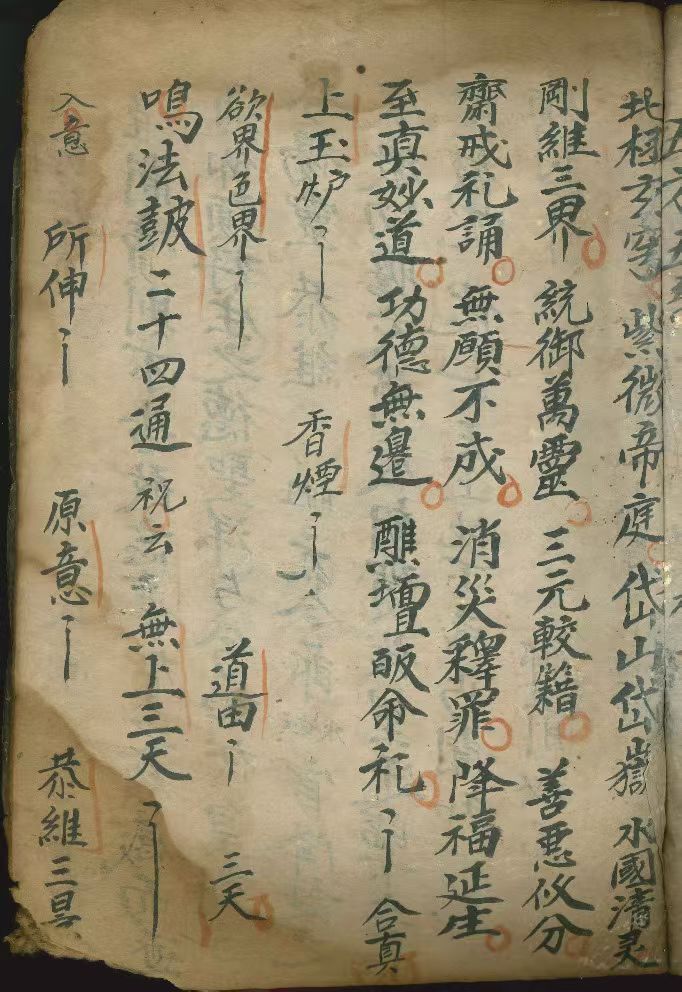 北極玄穹 紫微帝庭 岱山岱嶽 水國清灵
剛維三界 統御萬靈 三元較籍 善悪攸分
齋戒礼誦 無願不成 消災釋罪 降福延生
至真妙道 功德無邉 醮壇皈命礼 合真
上玉炉 香煙
欲界色界 道由 三天
鳴法皷二十四通 祝云 無上三天
入意 所伸 原意 恭維三景